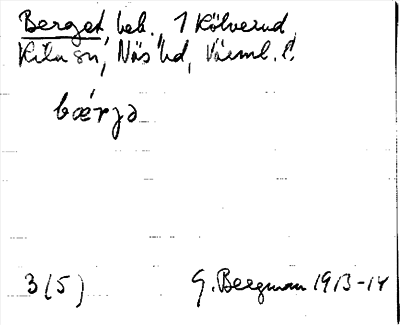 Berget, beb., 1 Kölverud,
Kila sn, Näs hd, Värml. l.
bærjə
3 (5) G. Bergman 1913-14